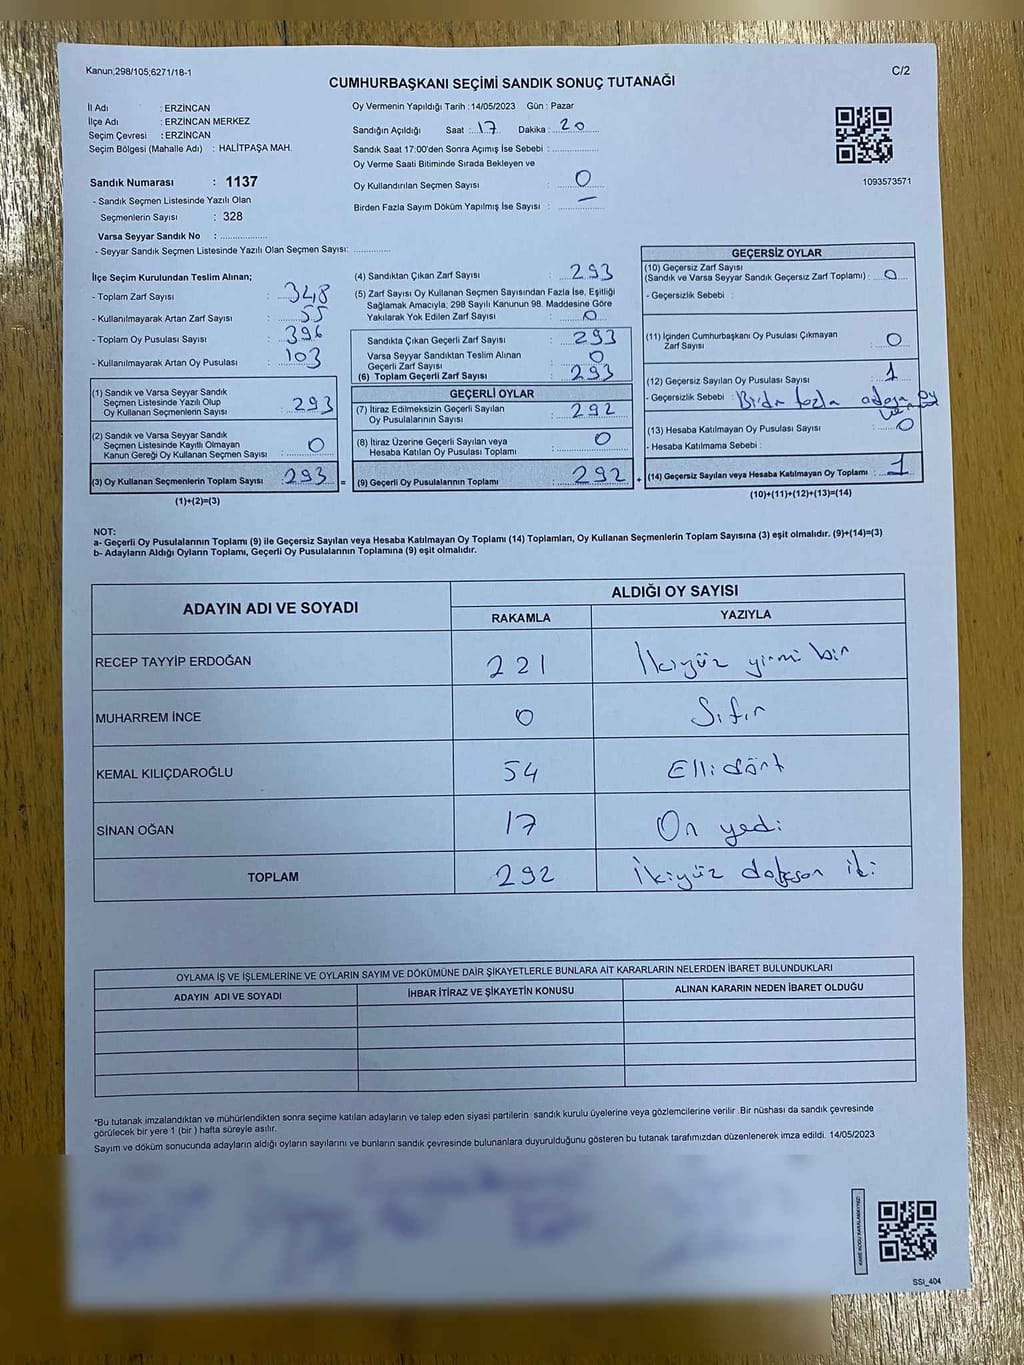 Kanun,298/105;6271/18-1
C/2
CUMHURBAŞKANI SEÇİMİ SANDIK SONUÇ TUTANAĞI
İl Adı : ERZİNCAN
İlçe Adı : ERZİNCAN MERKEZ
Seçim Çevresi : ERZİNCAN
Seçim Bölgesi (Mahalle Adı) : HALİTPAŞA MAH.
Sandık Numarası : 1137
- Sandık Seçmen Listesinde Yazılı Olan
Seçmenlerin Sayısı : 328
Varsa Seyyar Sandık No :
- Seyyar Sandık Seçmen Listesinde Yazılı Olan Seçmen Sayısı:
Oy Vermenin Yapıldığı Tarih :14/05/2023 Gün : Pazar
Sandığın Açıldığı Saat : 17 Dakika : 20
Sandık Saat 17:00'den Sonra Açımış İse Sebebi :
Oy Verme Saati Bitiminde Sırada Bekleyen ve
Oy Kullandırılan Seçmen Sayısı : 0
Birden Fazla Sayım Döküm Yapılmış İse Sayısı : –
1093573571
İlçe Seçim Kurulundan Teslim Alınan;
- Toplam Zarf Sayısı : 348
- Kullanılmayarak Artan Zarf Sayısı : 55
- Toplam Oy Pusulası Sayısı : 396
- Kullanılmayarak Artan Oy Pusulası : 103
(1) Sandık ve Varsa Seyyar Sandık
Seçmen Listesinde Yazılı Olup
Oy Kullanan Seçmenlerin Sayısı : 293
(2) Sandık ve Varsa Seyyar Sandık
Seçmen Listesinde Kayıtlı Olmayan
Kanun Gereği Oy Kullanan Seçmen Sayısı : 0
(3) Oy Kullanan Seçmenlerin Toplam Sayısı : 293 =
(1)+(2)=(3)
(4) Sandıktan Çıkan Zarf Sayısı : 293
(5) Zarf Sayısı Oy Kullanan Seçmen Sayısından Fazla İse, Eşitliği
Sağlamak Amacıyla; 298 Sayılı Kanunun 98. Maddesine Göre
Yakılarak Yok Edilen Zarf Sayısı : 0
Sandıkta Çıkan Geçerli Zarf Sayısı : 293
Varsa Seyyar Sandıktan Teslim Alınan
Geçerli Zarf Sayısı : 0
(6) Toplam Geçerli Zarf Sayısı : 293
GEÇERLİ OYLAR
(7) İtiraz Edilmeksizin Geçerli Sayılan
Oy Pusulalarının Sayısı : 292
(8) İtiraz Üzerine Geçerli Sayılan veya
Hesaba Katılan Oy Pusulası Toplamı : 0
(9) Geçerli Oy Pusulalarının Toplamı : 292 +
GEÇERSİZ OYLAR
(10) Geçersiz Zarf Sayısı
(Sandık ve Varsa Seyyar Sandık Geçersiz Zarf Toplamı) : 0
- Geçersizlik Sebebi :
(11) İçinden Cumhurbaşkanı Oy Pusulası Çıkmayan
Zarf Sayısı : 0
(12) Geçersiz Sayılan Oy Pusulası Sayısı : 1
- Geçersizlik Sebebi : fazla adaya oy
(13) Hesaba Katılmayan Oy Pusulası Sayısı : 0
- Hesaba Katılmama Sebebi :
(14) Geçersiz Sayılan veya Hesaba Katılmayan Oy Toplamı : 1
(10)+(11)+(12)+(13)=(14)
NOT:
a- Geçerli Oy Pusulalarının Toplamı (9) ile Geçersiz Sayılan veya Hesaba Katılmayan Oy Toplamı (14) Toplamları, Oy Kullanan Seçmenlerin Toplam Sayısına (3) eşit olmalıdır. (9)+(14)=(3)
b- Adayların Aldığı Oyların Toplamı, Geçerli Oy Pusulalarının Toplamına (9) eşit olmalıdır.
ADAYIN ADI VE SOYADI ALDIĞI OY SAYISI
RAKAMLA YAZIYLA
RECEP TAYYİP ERDOĞAN 221 İkiyüz yirmi bir
MUHARREM İNCE 0 Sıfır
KEMAL KILIÇDAROĞLU 54 Ellidört
SİNAN OĞAN 17 On yedi
TOPLAM 292 İkiyüz doksan iki
OYLAMA İŞ VE İŞLEMLERİNE VE OYLARIN SAYIM VE DÖKÜMÜNE DAİR ŞİKAYETLERLE BUNLARA AİT KARARLARIN NELERDEN İBARET BULUNDUKLARI
ADAYIN ADI VE SOYADI İHBAR İTİRAZ VE ŞİKAYETİN KONUSU ALINAN KARARIN NEDEN İBARET OLDUĞU
*Bu tutanak imzalandıktan ve mühürlendikten sonra seçime katılan adayların ve talep eden siyasi partilerin sandık kurulu üyelerine veya gözlemcilerine verilir .Bir nüshası da sandık çevresinde
görülecek bir yere 1 (bir ) hafta süreyle asılır.
Sayım ve döküm sonucunda adayların aldığı oyların sayılarını ve bunların sandık çevresinde bulunanlara duyurulduğunu gösteren bu tutanak tarafımızdan düzenlenerek imza edildi. 14/05/2023
KARE KODU KARALAMAYINIZ!
SSI_404